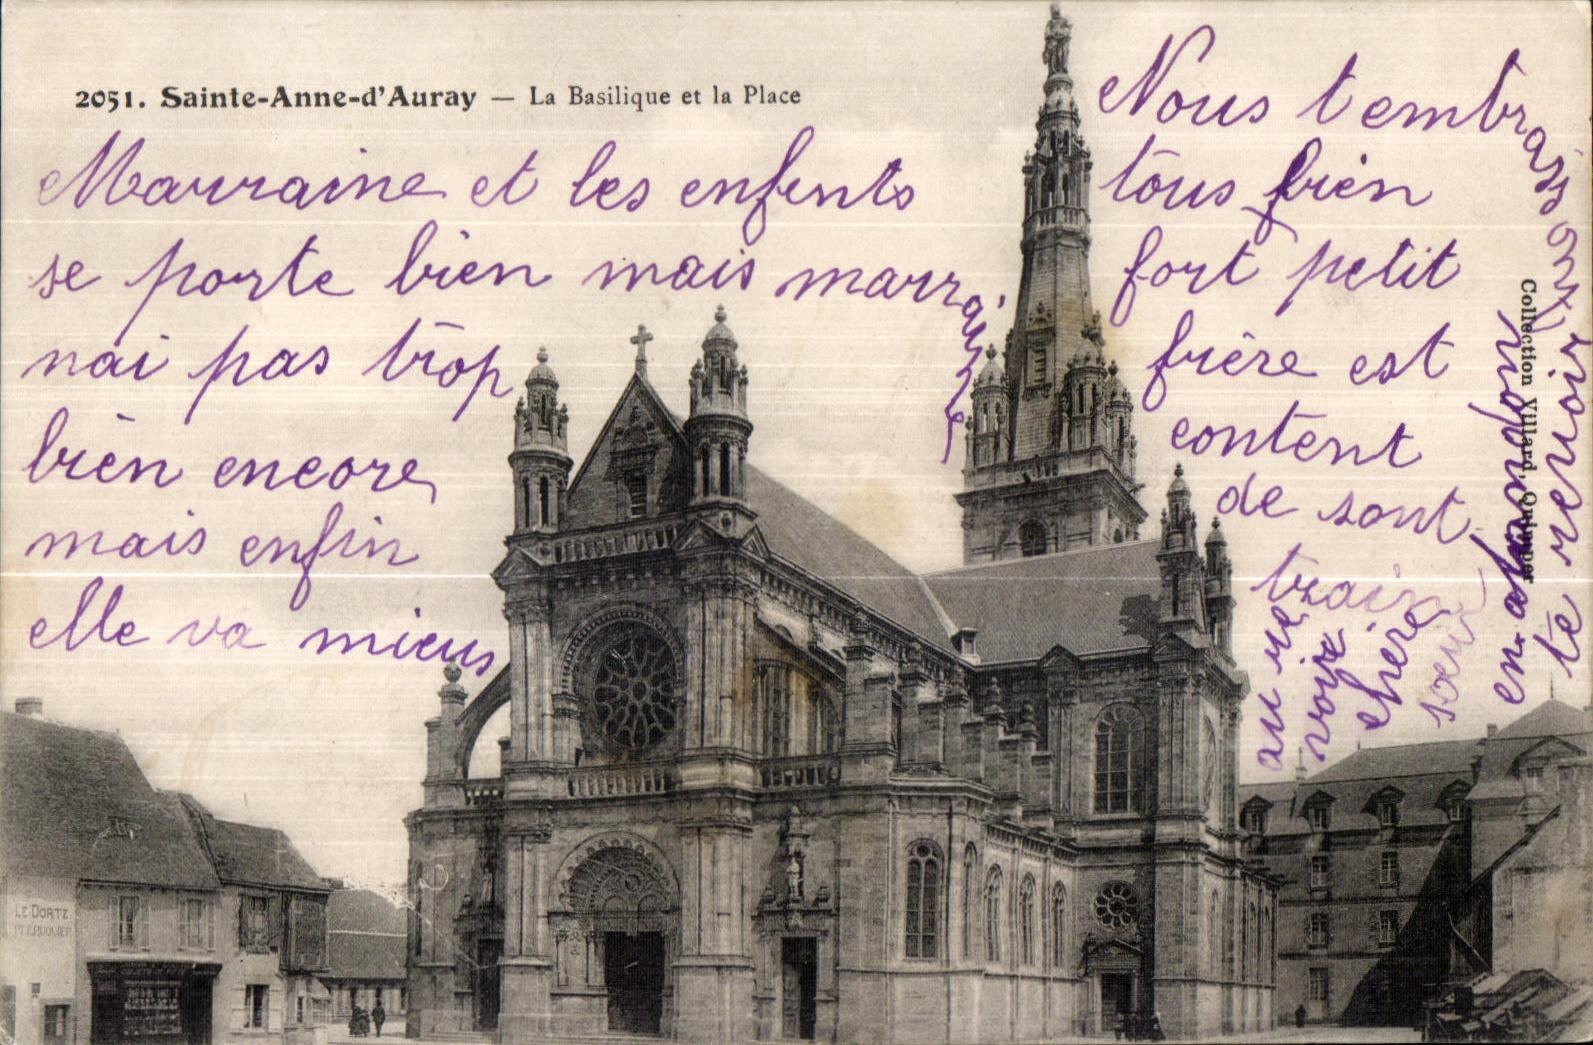 2051. Sainte-Anne-d'Auray — La Basilique et la Place
Marraine et les enfents
se porte bien mais marraine
nai pas trop
bien encore,
mais enfin
elle va mieus
Nous t embrassons
tous bien
fort petit
frère est
content
de sont
train
au re
voire
chère
soeur
en
te revoir
Collection Villard, Quimper
LE DORTZ
PERRUQUIER